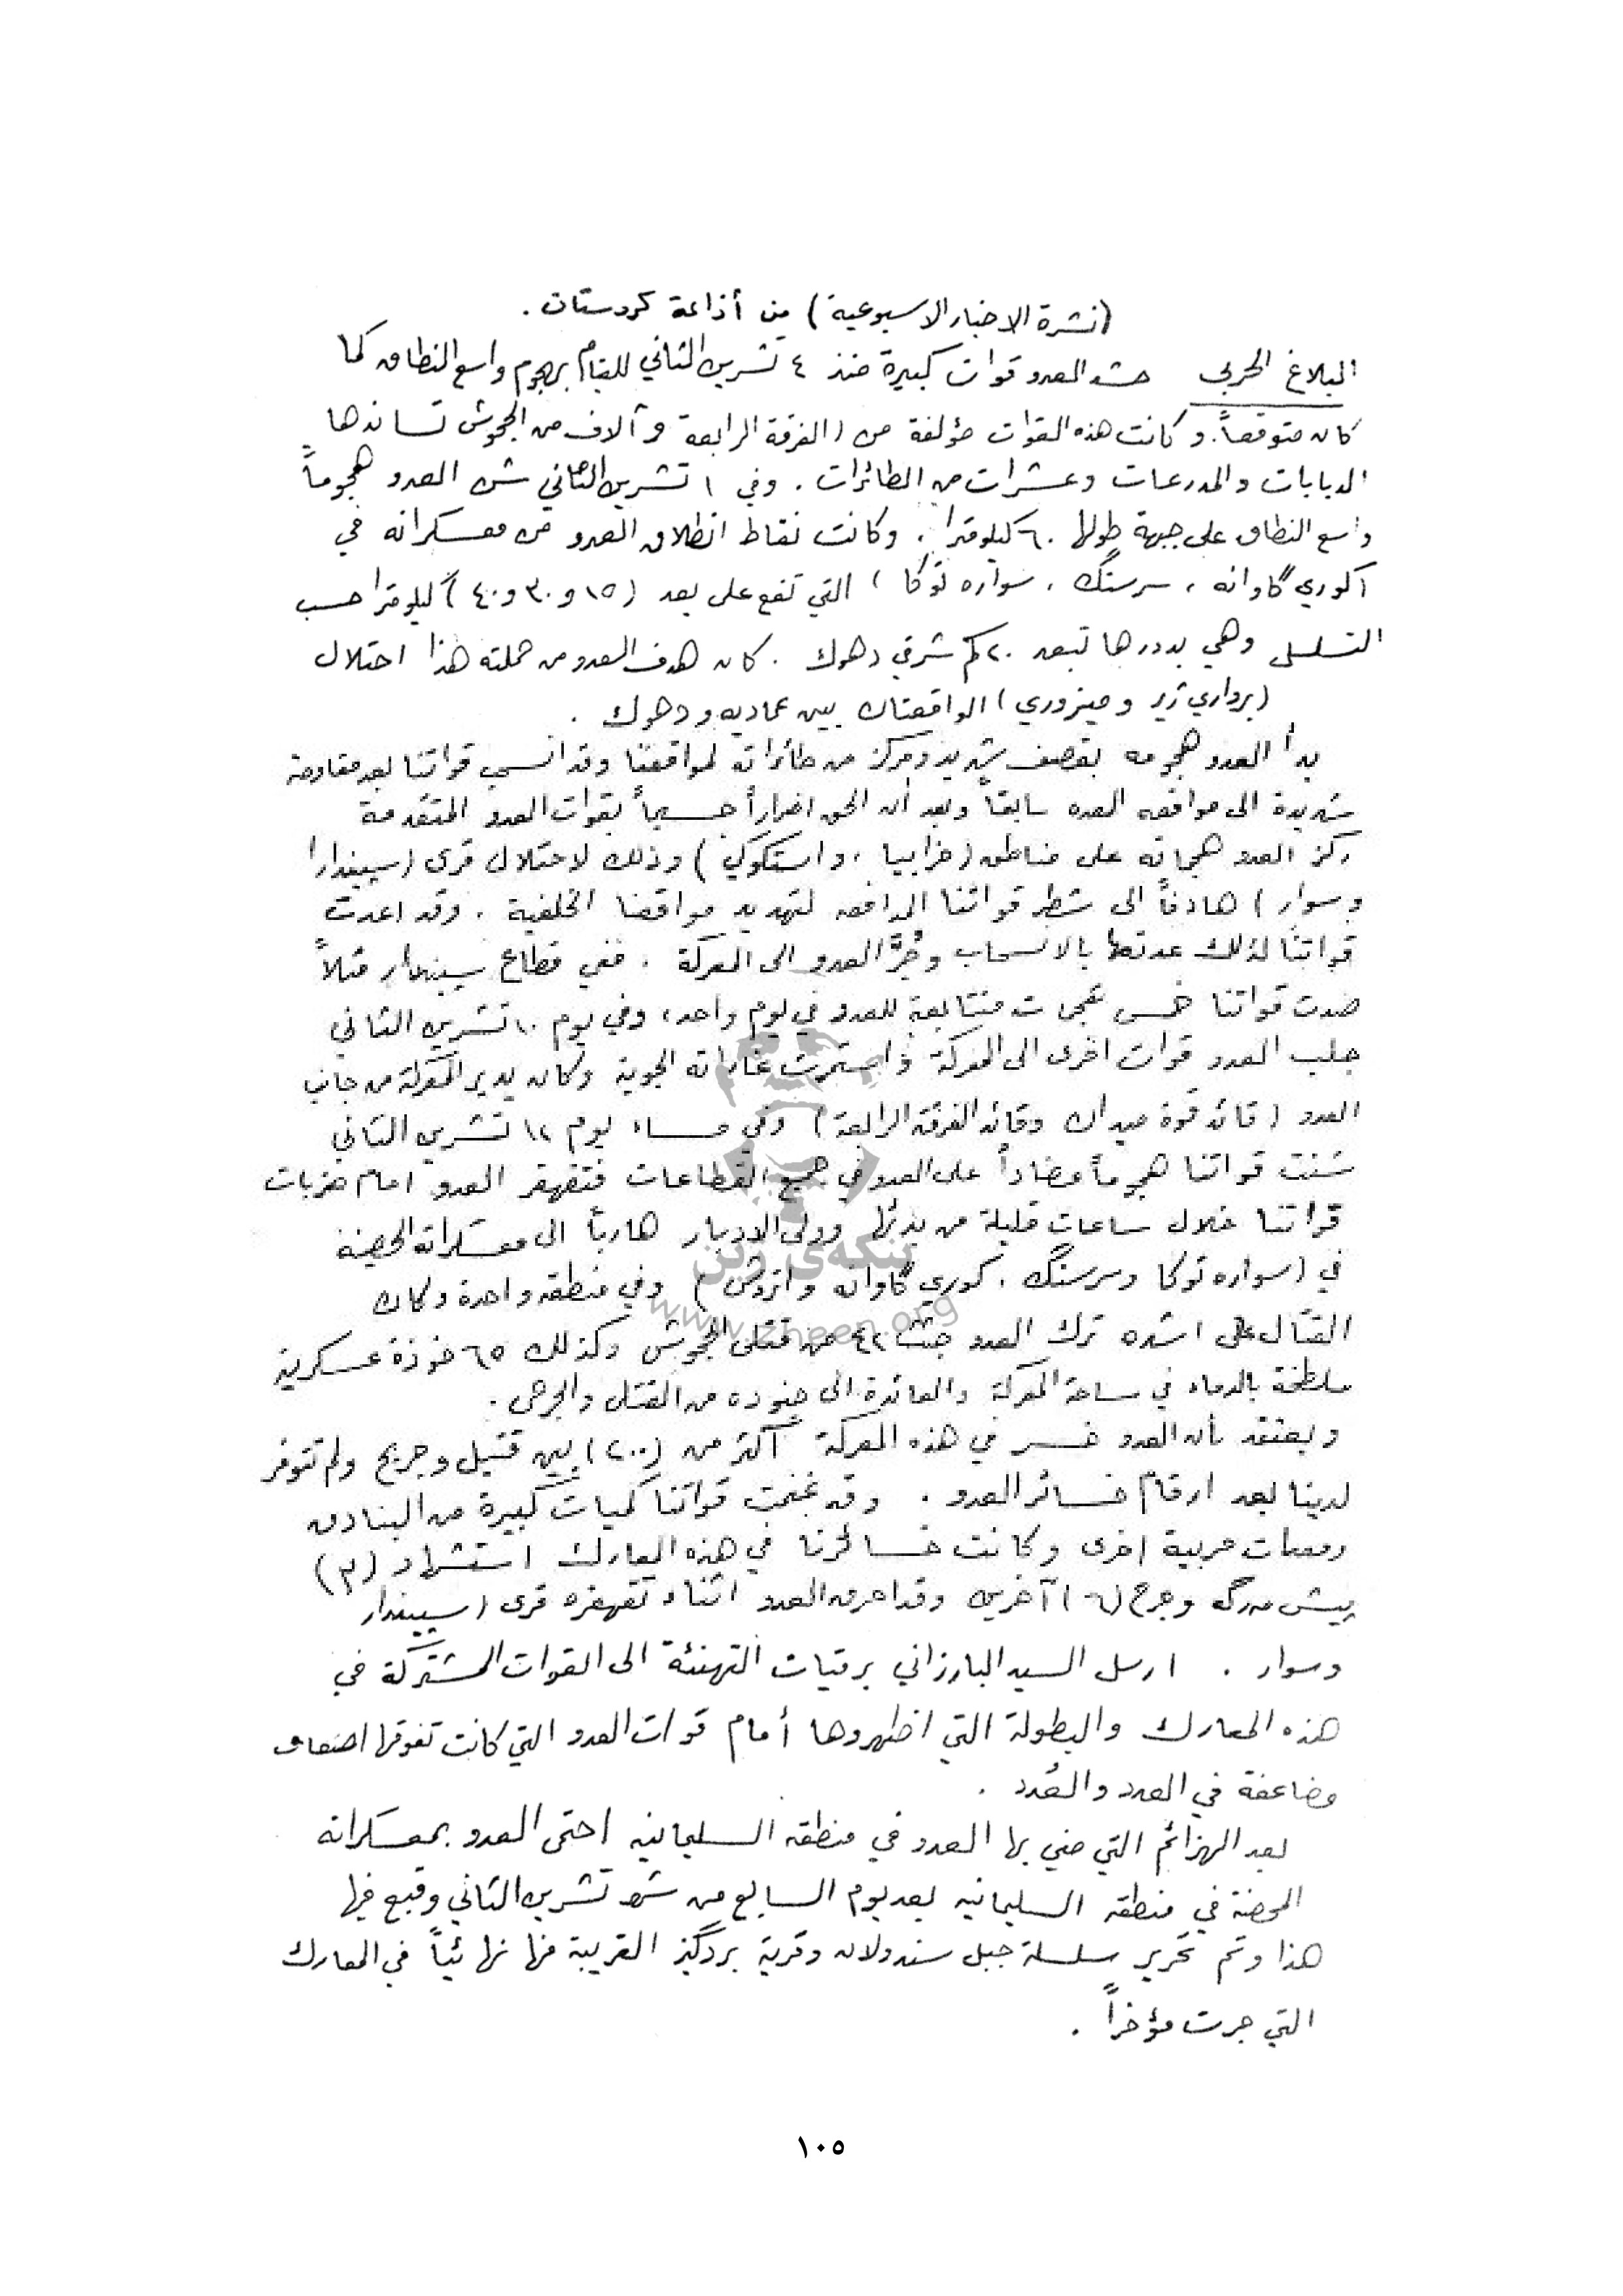 (نشرة الاخبار الاسبوعية) من أذاعة كردستان .
البلاغ الحربي حشد العدو قوات كبيرة منذ ٤ تشرين الثاني للقيام بهجوم واسع النطاق كما
كان متوقعاً. وكانت هذه القوات مؤلفة من (الفرقة الرابعة وآلاف من الجحوش تساندها
الدبابات والمدرعات وعشرات من الطائرات . وفي ١ تشرين الثاني شن العدو هجوماً
واسع النطاق على جبهة طولها ٦٠ كيلومترا . وكانت نقاط انطلاق العدو من معسكراته في
(كوري گاوانه ، سرسنگ ، سواره توكا) التي تقع على بعد (١٥ و ٣٠ و ٤٠) كيلومترا حسب
التسلسل وهي بدورها تبعد ٢٠ كم شرقي دهوك . كان هدف العدو من حملته هذا احتلال
(برواري ژير و ميزوري) الواقعتان بين عماديه ودهوك .
بدأ العدو هجومه بقصف شديد ومركز من طائراته لمواقعنا وقد انسحب قواتنا بعد مقاومة
شديدة الى مواقعه المعده سابقاً وبعد أن الحق اضراراً جسيماً بقوات العدو المتقدمة
ركز العدو هجماته على مناطق (خرابيا ، واستكوكي) وذلك لاحتلال قرى (سبيندارا
وسوار) هادفاً الى شطر قواتنا المدافعه لتهديد مواقعنا الخلفية . وقد اعدت
قواتنا لذلك عدتها بالانسحاب وجُرَّ العدو الى المعركة . ففي قطاع سبيندار مثلاً
صدت قواتنا خمس هجمات متتابعة للعدو في يوم واحد، وفي يوم ١٠ تشرين الثاني
جلب العدو قوات اخرى الى المعركة واستمرت غاراته الجوية وكان يدير المعركة من جانب
العدو (قائد قوة ميدان وقائد الفرقة الرابعة) وفي مساء يوم ١٢ تشرين الثاني
شنت قواتنا هجوماً مضاداً على العدو في جميع القطاعات فتقهقر العدو امام ضربات
قواتنا خلال ساعات قليلة من بدئها وولى الادبار هارباً الى معسكراته الحصينة
في (سواره توكا وسرسنگ . كوري گاوانه واتروش) وفي منطقه واحدة وكان
القتال على اشده ترك العدو جثث ٤٢ من قتلى الجحوش وكذلك ٦٥ خوذة عسكرية
ملطخة بالدماء في ساحة المعركة والعائدة الى جنوده من القتلى والجرحى .
ويعتقد بأن العدو خسر في هذه المعركة أكثر من (٢٠٠) بين قتيل وجريح ولم تتوفر
لدينا بعد ارقام خسائر العدو . وقد غنمت قواتنا كميات كبيرة من البنادق
ومعدات حربية اخرى وكانت خسائرنا في هذه المعارك استشهاد (٣)
پيش مه‌رگه وجرح (٦) آخرين وقد احرق العدو اثناء تقهقره قرى (سبيندار
وسوار . ارسل السيد البارزاني برقيات التهنئة الى القوات المشتركة في
هذه المعارك والبطولة التي اظهروها أمام قوات العدو التي كانت تفوقها اضعاف
مضاعفة في العدد والعُدد .
بعد الهزائم التي مني بها العدو في منطقه السليمانيه احتمى العدو بمعسكراته
المحصنة في منطقه السليمانيه بعد يوم السابع من شهر تشرين الثاني وقبع فيها
هذا وتم تحرير سلسلة جبل سندولان وقرية بردگيز القريبة منها نهائياً في المعارك
التي جرت مؤخراً .
١٠٥
بنكه‌ى ژين
www.zheen.org